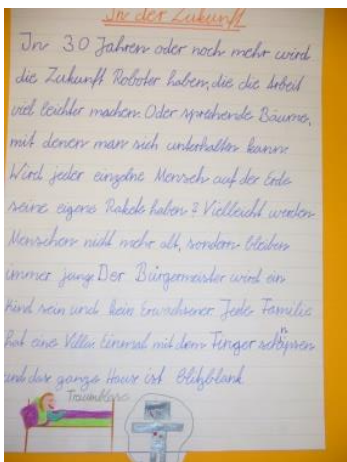 In der Zukunft
In 30 Jahren oder noch mehr wird
die Zukunft Roboter haben, die die Arbeit
viel leichter machen. Oder sprechende Bäume,
mit denen man sich unterhalten kann.
Wird jeder einzelne Mensch auf der Erde
seine eigene Rakete haben? Vielleicht werden
Menschen nicht mehr alt, sondern bleiben
immer jung. Der Bürgermeister wird ein
Kind sein und kein Erwachsener. Jede Familie
hat eine Villa. Einmal mit dem Finger schnipsen
und das ganze Haus ist blitzblank
Traumblase